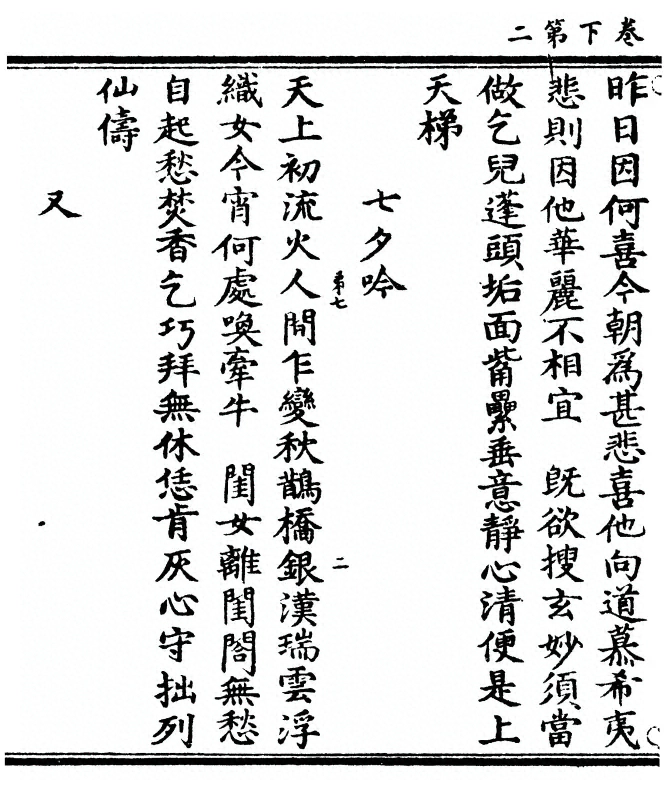 卷下第二
昨日因何喜今朝爲甚悲喜他向道慕希夷
悲則因他華麗不相宜　旣欲搜玄妙須當
做乞兒蓬頭垢面觜纍垂意靜心清便是上
天梯
七夕吟
第七
二
天上初流火人間乍變秋鵲橋銀漢瑞雲浮
織女今宵何處喚牽牛　閨女離閨閤無愁
自起愁焚香乞巧拜無休恁肯灰心守拙列
仙儔
又